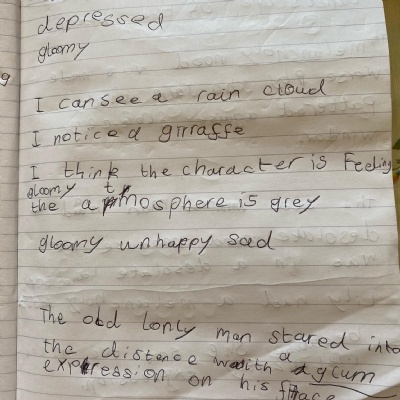 depressed
gloomy
I can see a rain cloud
I notice a girraffe
I think the character is Feeling
gloomy
the atmosphere is grey
gloomy unhappy sad
The old lonly man stared into
the distence with a glum
expression on his face